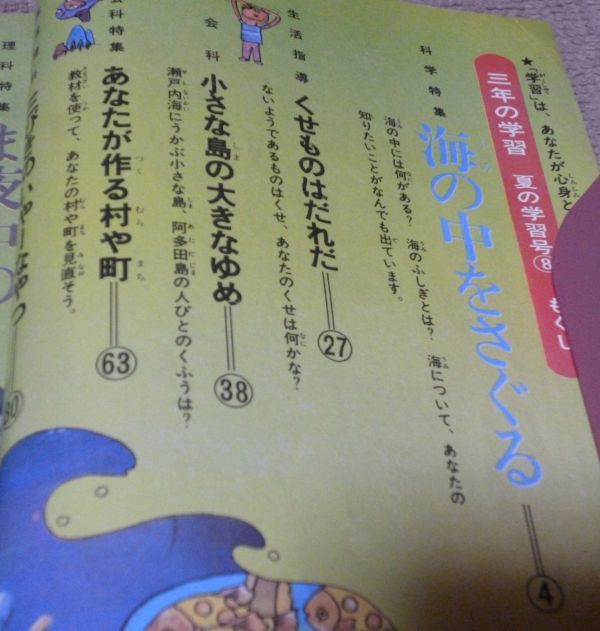 ★「学習」は、あなたが心身と
三年の学習 夏の学習号⑧ もくじ
科学特集
海の中をさぐる
④
海の中には何がある? 海のふしぎとは? 海について、あなたの
知りたいことがなんでも出ています。
生活指導
くせものはだれだ
㉗
ないようであるものはくせ、あなたのくせは何かな?
会科
小さな島の大きなゆめ
㊳
瀬戸内海にうかぶ小さな島、阿多田島の人びとのくふうは?
会科特集
あなたが作る村や町
63
教材を使って、あなたの村や町を見直そう。
理科特集